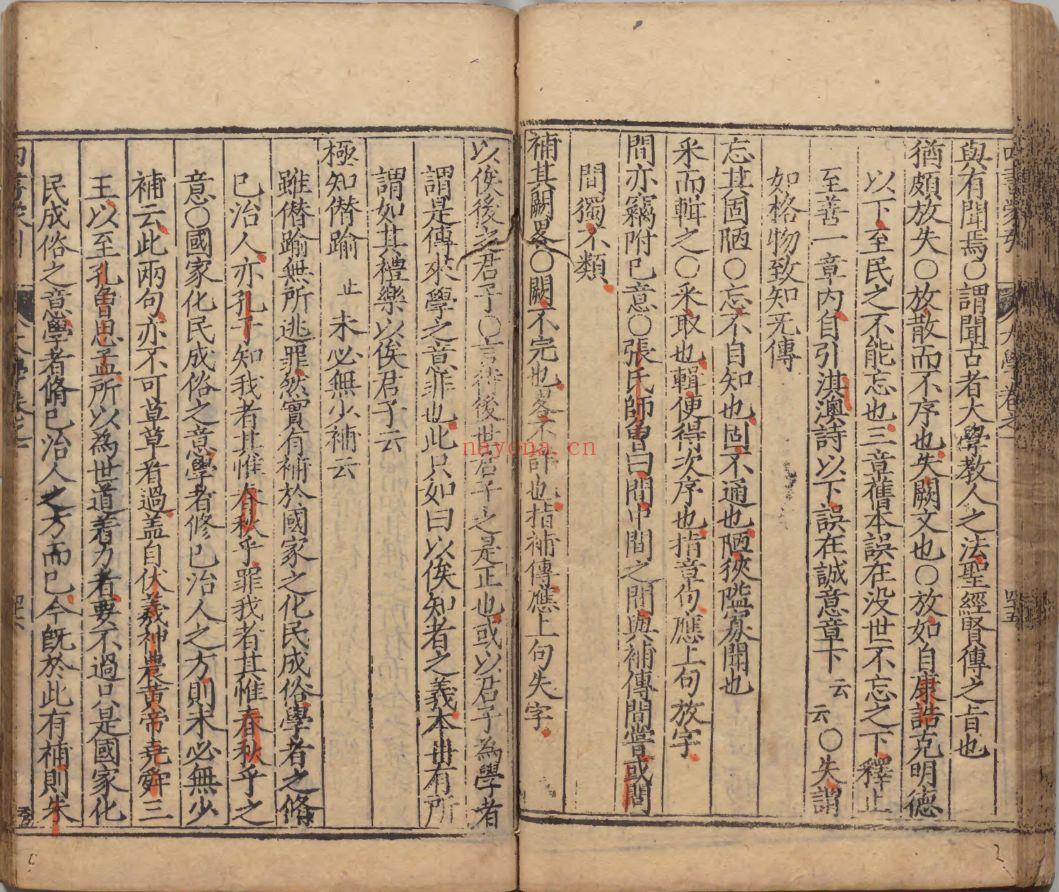 與有聞焉○謂聞古者大學教人之法聖經賢傳之旨也
猶頗放失○放散而不序也失闕文也○放如自康誥克明德
以下至民之不能忘也三章舊本誤在没世不忘之下釋止
至善一章内自引淇澳詩以下誤在誠意章下云云○失謂
如格物致知无傳
忘其固陋○忘不自知也固不通也陋狹隘寡聞也
采而輯之○采取也輯便得次序也指章句應上句放字
間亦竊附已意○張氏師曾曰間中間之間與補傳間嘗或問
間獨不類
補其闕畧○闕不完也畧不詳也指補傳應上句失字
以俟後之君子○言待後世君子之是正也或以君子為學者
謂是傳來學之意非也此只如曰以俟知者之義本丗有所
謂如其禮樂以俟君子云
極知僣踰止未必無少補云
雖僣踰無所逃罪然實有補於國家之化民成俗學者之脩
已治人亦孔子知我者其惟春秋乎罪我者其惟春秋乎之
意○國家化民成俗之意學者修已治人之方則未必無少
補云此兩句亦不可草草看過盖自伏羲神農黄帝堯舜三
王以至孔曾思孟所以為世道着力者要不過只是國家化
民成俗之意學者脩已治人之方而已今旣於此有補則朱
nayona.cn